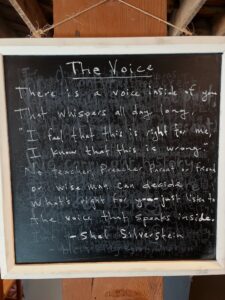 The Voice
There is a voice inside of you
That whispers all day long,
"I feel that this is right for me,
I know that this is wrong."
No teacher, preacher, parent or friend
or wise man can decide
What's right for you- just listen to
the voice that speaks inside.
- Shel Silverstein